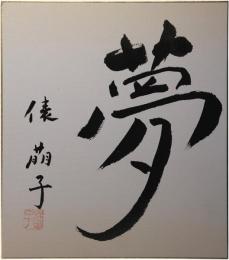 夢
俵萠子